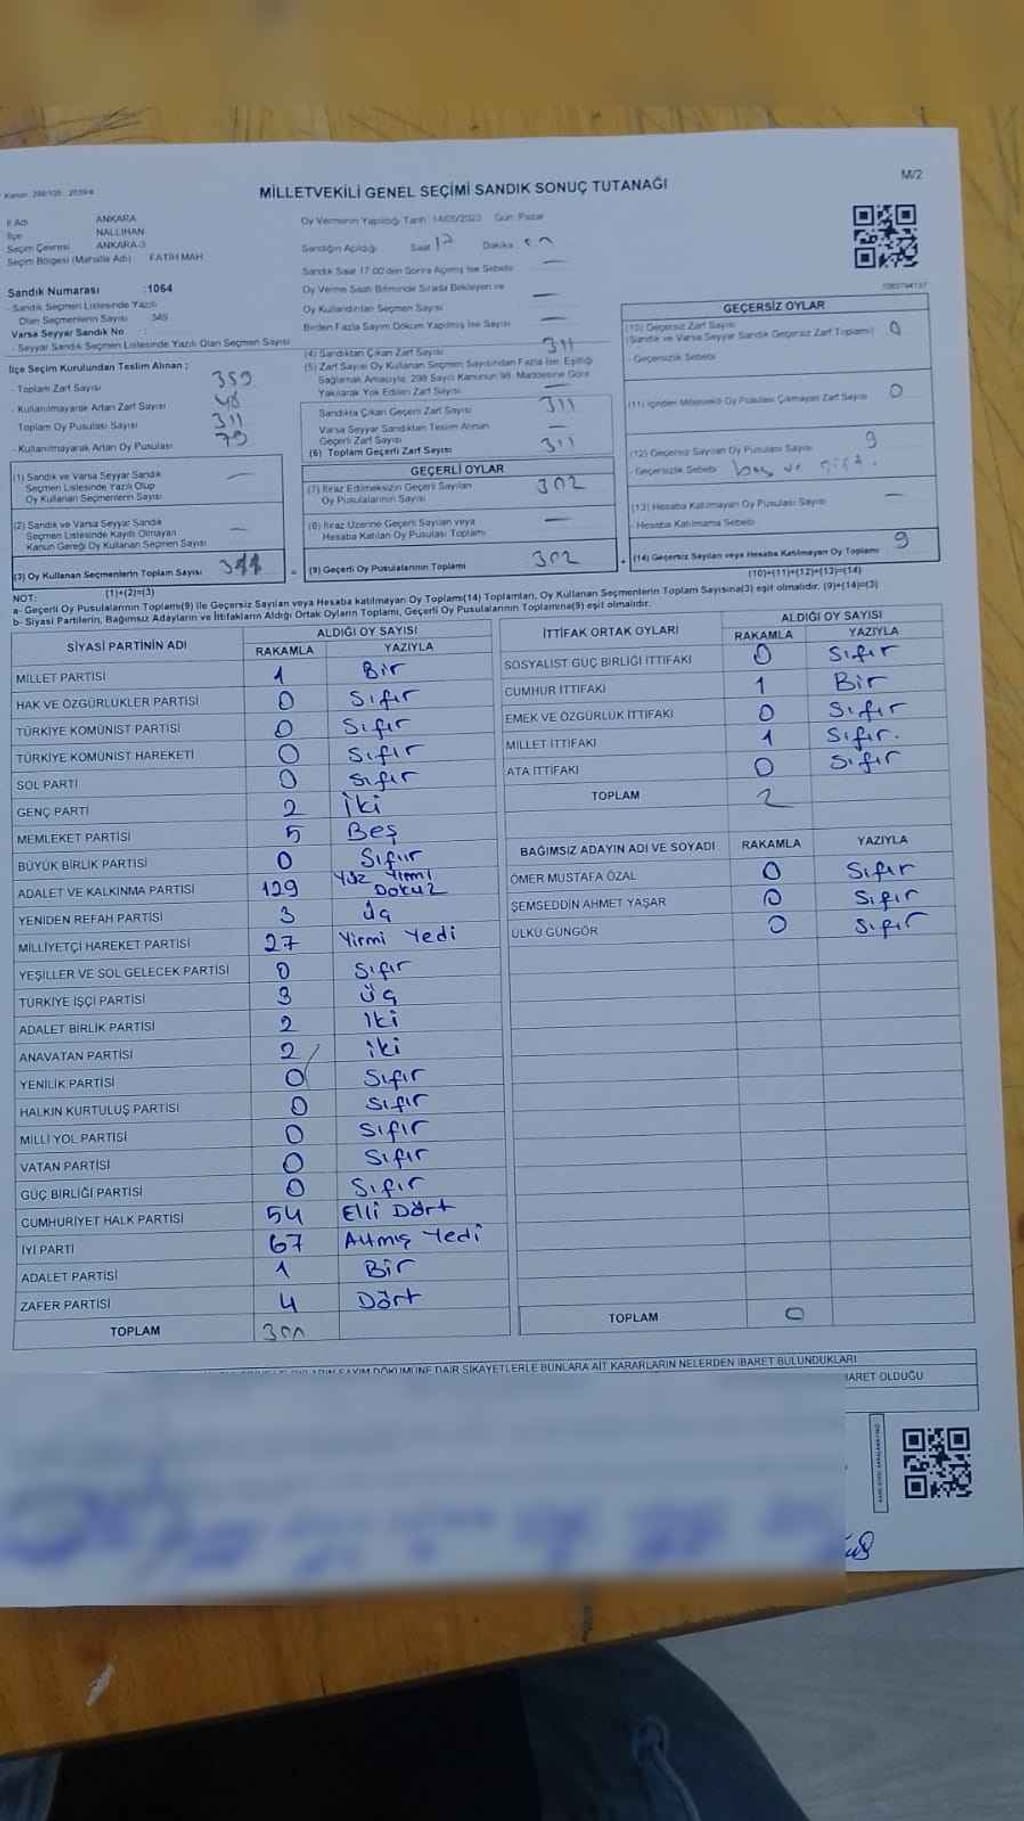 M/2
MİLLETVEKİLİ GENEL SEÇİMİ SANDIK SONUÇ TUTANAĞI
İl Adı ANKARA
İlçe NALLIHAN
Seçim Çevresi ANKARA-3
Seçim Bölgesi (Mahalle Adı) FATİH MAH
Sandık Numarası :1064
Sandık Seçmen Listesinde Yazılı
Olan Seçmenlerin Sayısı 349
Varsa Seyyar Sandık No :
- Seyyar Sandık Seçmen Listesinde Yazılı Olan Seçmen Sayısı
İlçe Seçim Kurulundan Teslim Alınan :
- Toplam Zarf Sayısı 359
- Kullanılmayarak Artan Zarf Sayısı 48
Toplam Oy Pusulası Sayısı 311
- Kullanılmayarak Artan Oy Pusulası 79
(1) Sandık ve Varsa Seyyar Sandık
Seçmen Listesinde Yazılı Olup
Oy Kullanan Seçmenlerin Sayısı —
(2) Sandık ve Varsa Seyyar Sandık
Seçmen Listesinde Kayıtlı Olmayan
Kanun Gereği Oy Kullanan Seçmen Sayısı —
(3) Oy Kullanan Seçmenlerin Toplam Sayısı 311
(1)+(2)=(3)
Oy Vermenin Yapıldığı Tarih :14/05/2023 Gün: Pazar
Sandığın Açıldığı Saat 17 Dakika
Sandık Saat 17:00'den Sonra Açılmış İse Sebebi —
Oy Verme Saati Bitiminde Sırada Bekleyen ve
Oy Kullandırılan Seçmen Sayısı —
Birden Fazla Sayım Döküm Yapılmış İse Sayısı —
(4) Sandıktan Çıkan Zarf Sayısı 311
(5) Zarf Sayısı Oy Kullanan Seçmen Sayısından Fazla İse, Eşitliği
Sağlamak Amacıyla, 298 Sayılı Kanunun 98. Maddesine Göre
Yakılarak Yok Edilen Zarf Sayısı —
Sandıkta Çıkan Geçerli Zarf Sayısı 311
Varsa Seyyar Sandıktan Teslim Alınan
Geçerli Zarf Sayısı —
(6) Toplam Geçerli Zarf Sayısı 311
GEÇERLİ OYLAR
(7) İtiraz Edilmeksizin Geçerli Sayılan
Oy Pusulalarının Sayısı 302
(8) İtiraz Üzerine Geçerli Sayılan veya
Hesaba Katılan Oy Pusulası Toplamı —
= (9) Geçerli Oy Pusulalarının Toplamı 302
GEÇERSİZ OYLAR
(10) Geçersiz Zarf Sayısı
(Sandık ve Varsa Seyyar Sandık Geçersiz Zarf Toplamı) 0
- Geçersizlik Sebebi
(11) İçinden Milletvekili Oy Pusulası Çıkmayan Zarf Sayısı 0
(12) Geçersiz Sayılan Oy Pusulası Sayısı 9
- Geçersizlik Sebebi boş ve
(13) Hesaba Katılmayan Oy Pusulası Sayısı —
- Hesaba Katılmama Sebebi
+ (14) Geçersiz Sayılan veya Hesaba Katılmayan Oy Toplamı 9
(10)+(11)+(12)+(13)=(14)
NOT:
a- Geçerli Oy Pusulalarının Toplamı(9) ile Geçersiz Sayılan veya Hesaba katılmayan Oy Toplamı(14) Toplamları, Oy Kullanan Seçmenlerin Toplam Sayısına(3) eşit olmalıdır. (9)+(14)=(3)
b- Siyasi Partilerin, Bağımsız Adayların ve İttifakların Aldığı Ortak Oyların Toplamı, Geçerli Oy Pusulalarının Toplamına(9) eşit olmalıdır.
SİYASİ PARTİNİN ADI ALDIĞI OY SAYISI
RAKAMLA YAZIYLA
MİLLET PARTİSİ 1 Bir
HAK VE ÖZGÜRLÜKLER PARTİSİ 0 Sıfır
TÜRKİYE KOMÜNİST PARTİSİ 0 Sıfır
TÜRKİYE KOMÜNİST HAREKETİ 0 Sıfır
SOL PARTİ 0 Sıfır
GENÇ PARTİ 2 İki
MEMLEKET PARTİSİ 5 Beş
BÜYÜK BİRLİK PARTİSİ 0 Sıfıır
ADALET VE KALKINMA PARTİSİ 129 Yüz Yirmi Dokuz
YENİDEN REFAH PARTİSİ 3 Üç
MİLLİYETÇİ HAREKET PARTİSİ 27 Yirmi Yedi
YEŞİLLER VE SOL GELECEK PARTİSİ 0 Sıfır
TÜRKİYE İŞÇİ PARTİSİ 3 Üç
ADALET BİRLİK PARTİSİ 2 İki
ANAVATAN PARTİSİ 2 iki
YENİLİK PARTİSİ 0 Sıfır
HALKIN KURTULUŞ PARTİSİ 0 Sıfır
MİLLİ YOL PARTİSİ 0 Sıfır
VATAN PARTİSİ 0 Sıfır
GÜÇ BİRLİĞİ PARTİSİ 0 Sıfır
CUMHURİYET HALK PARTİSİ 54 Elli Dört
İYİ PARTİ 67 Altmış Yedi
ADALET PARTİSİ 1 Bir
ZAFER PARTİSİ 4 Dört
TOPLAM 300
İTTİFAK ORTAK OYLARI ALDIĞI OY SAYISI
RAKAMLA YAZIYLA
SOSYALİST GÜÇ BİRLİĞİ İTTİFAKI 0 Sıfır
CUMHUR İTTİFAKI 1 Bir
EMEK VE ÖZGÜRLÜK İTTİFAKI 0 Sıfır
MİLLET İTTİFAKI 1 Sıfır.
ATA İTTİFAKI 0 Sıfır
TOPLAM 2
BAĞIMSIZ ADAYIN ADI VE SOYADI RAKAMLA YAZIYLA
ÖMER MUSTAFA ÖZAL 0 Sıfır
ŞEMSEDDİN AHMET YAŞAR 0 Sıfır
ÜLKÜ GÜNGÖR 0 Sıfır
TOPLAM 0
SAYIM DÖKÜMÜNE DAİR ŞİKAYETLERLE BUNLARA AİT KARARLARIN NELERDEN İBARET BULUNDUKLARI
İBARET OLDUĞU